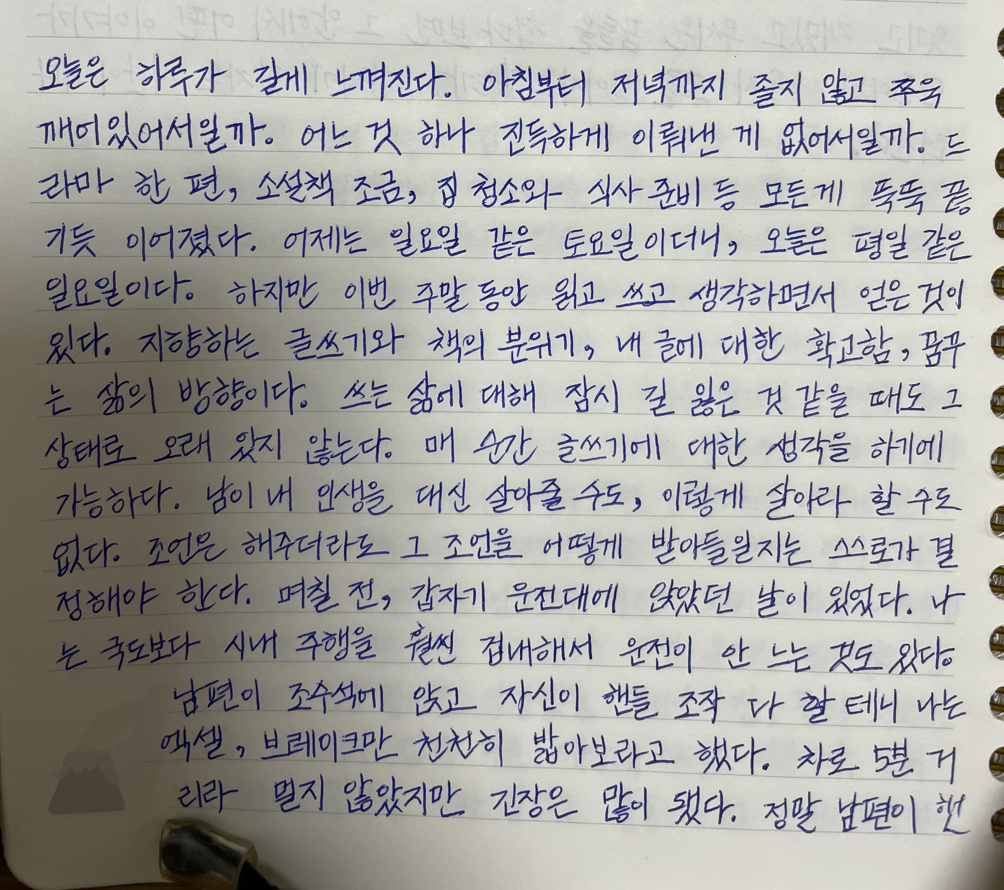 오늘은 하루가 길게 느껴진다. 아침부터 저녁까지 졸지 않고 쭈욱
깨어있어서일까. 어느 것 하나 진득하게 이뤄낸 게 없어서일까. 드
라마 한 편, 소설책 조금, 집 청소와 식사 준비 등 모든게 뚝뚝 끊
기듯 이어졌다. 어제는 일요일 같은 토요일이더니, 오늘은 평일 같은
일요일이다. 하지만 이번 주말 동안 읽고 쓰고 생각하면서 얻은 것이
있다. 지향하는 글쓰기와 책의 분위기, 내 글에 대한 확고함, 꿈꾸
는 삶의 방향이다. 쓰는 삶에 대해 잠시 길 잃은 것 같을 때도 그
상태로 오래 있지 않는다. 매 순간 글쓰기에 대한 생각을 하기에
가능하다. 남이 내 인생을 대신 살아줄 수도, 이렇게 살아라 할 수도
없다. 조언은 해주더라도 그 조언을 어떻게 받아들일지는 스스로가 결
정해야 한다. 며칠 전, 갑자기 운전대에 앉았던 날이 있었다. 나
는 국도보다 시내 주행을 훨씬 겁내해서 운전이 안 느는 것도 있다.
남편이 조수석에 앉고 자신이 핸들 조작 다 할 테니 나는
엑셀, 브레이크만 천천히 밟아보라고 했다. 차로 5분 거
리라 멀지 않았지만 긴장은 많이 됐다. 정말 남편이 핸